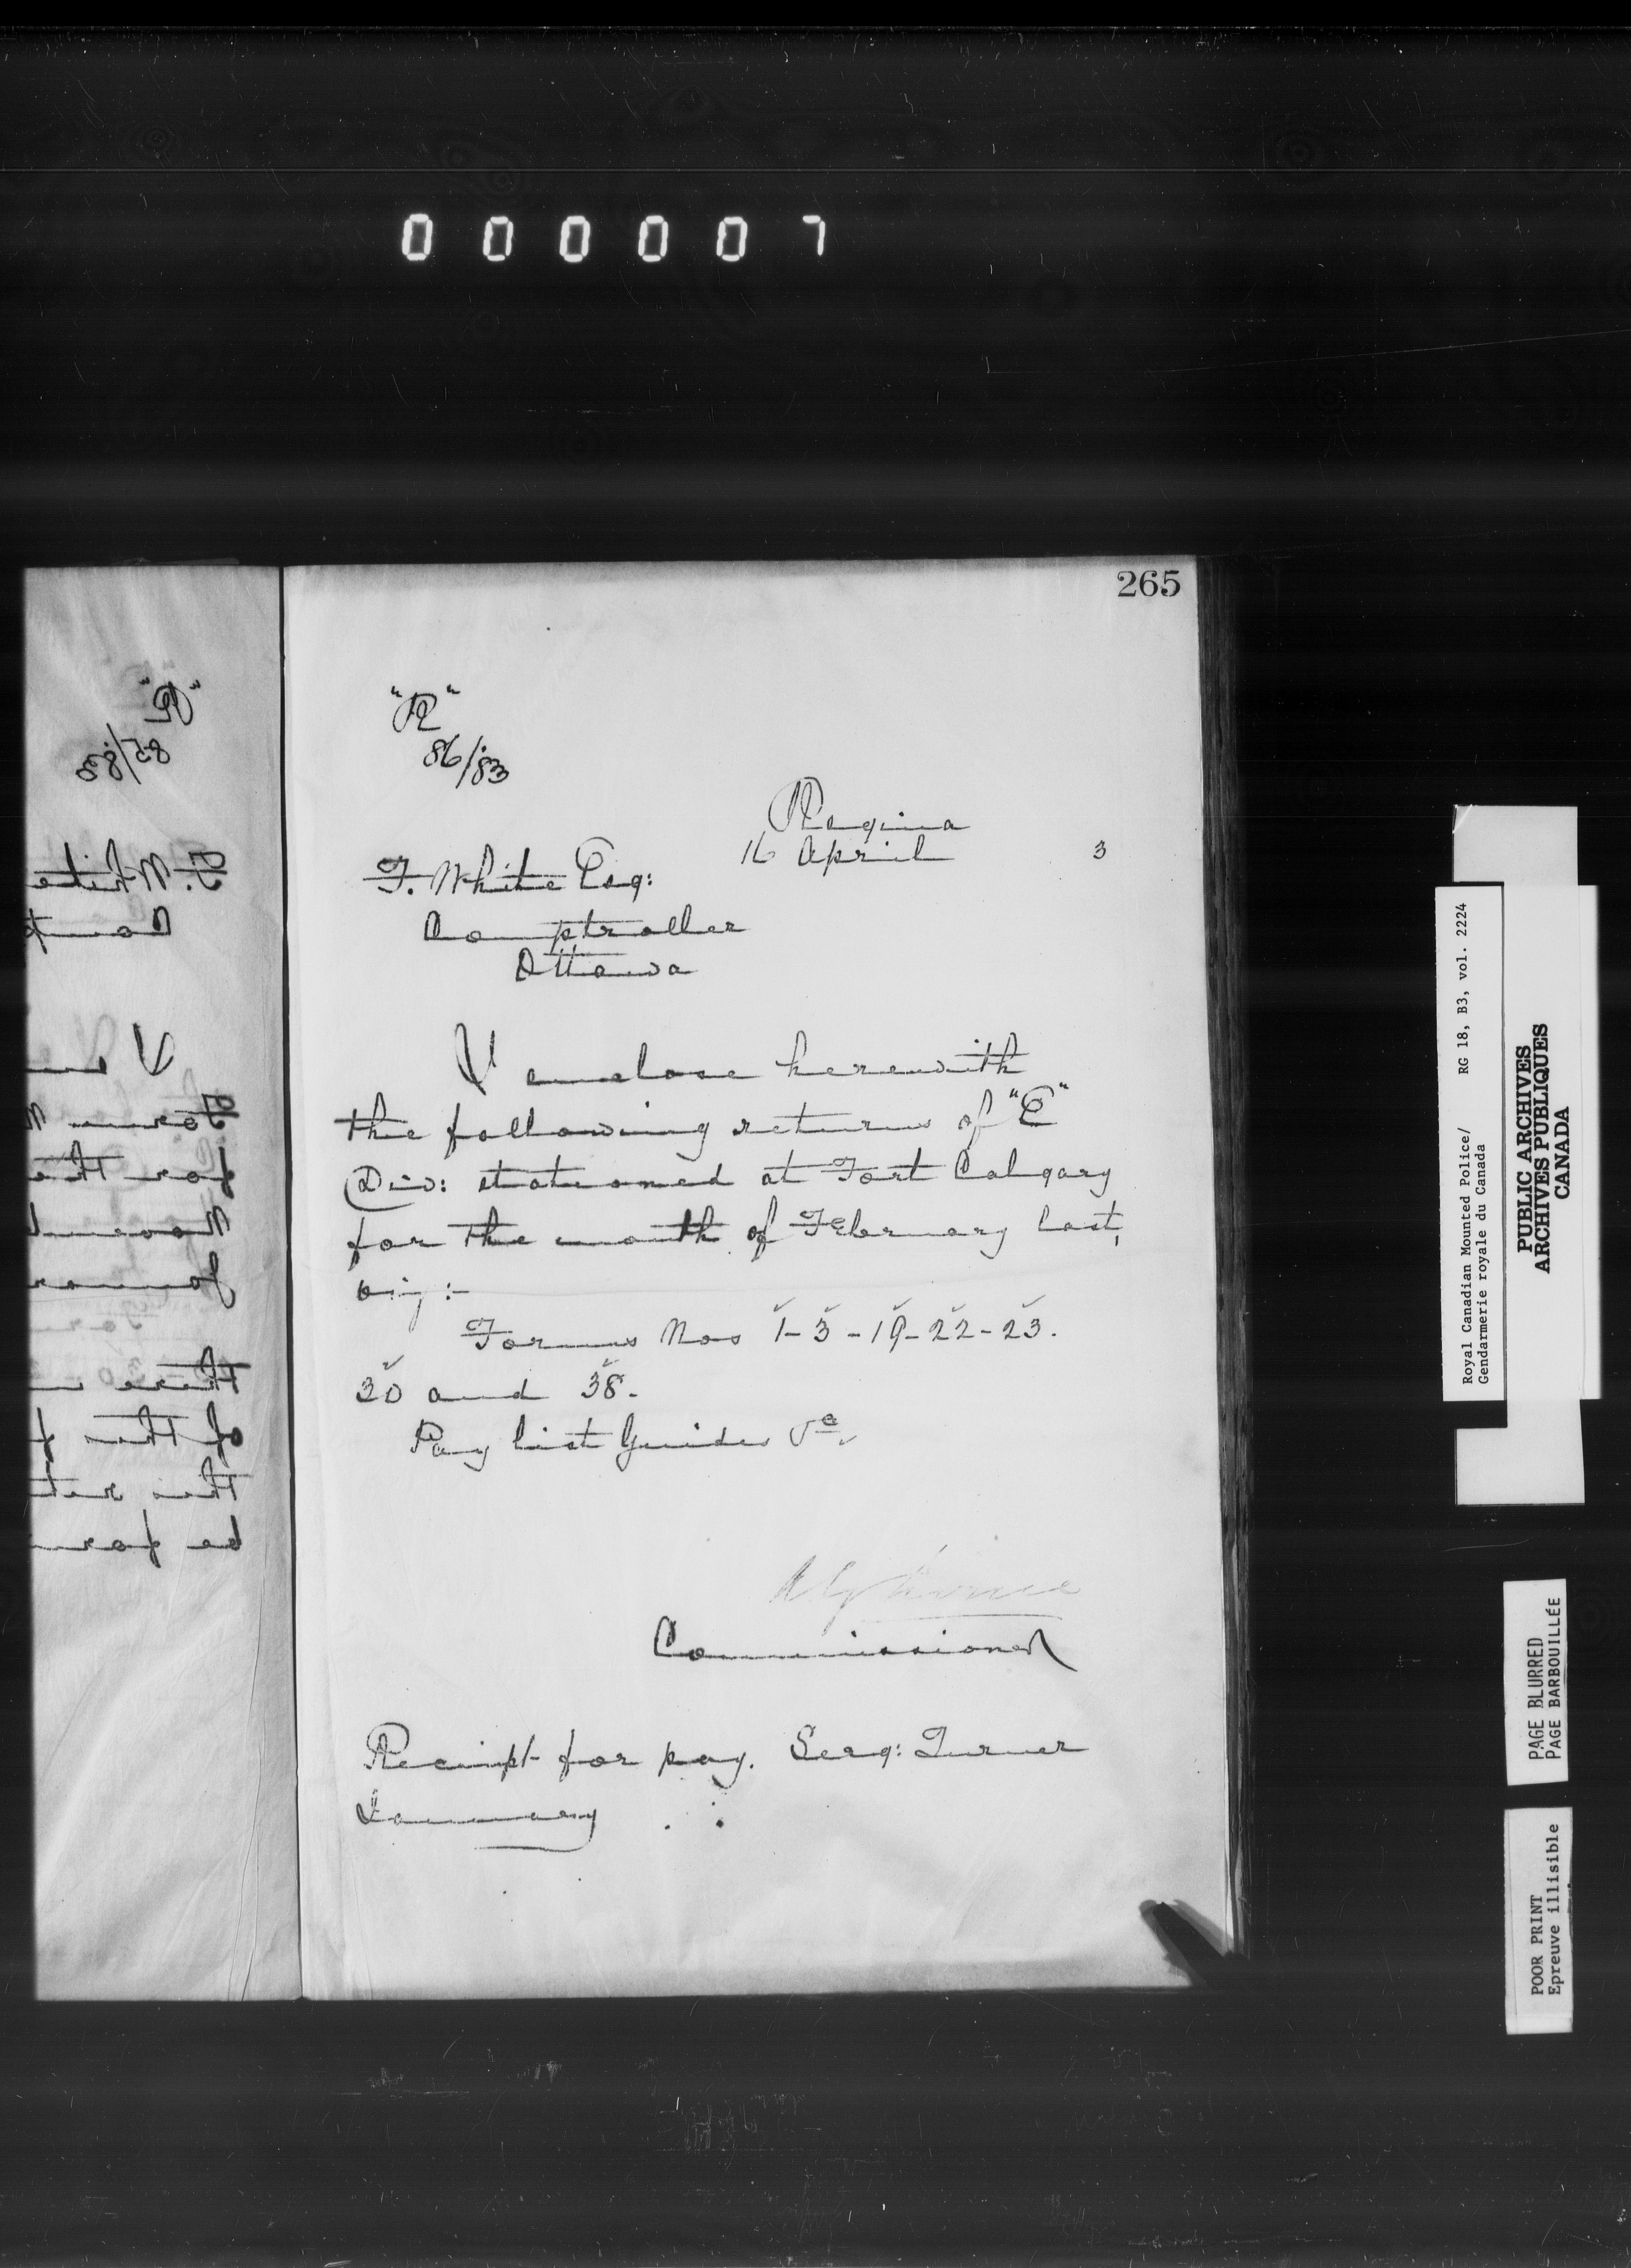 0 0 0 0 0 7
265
"R"
85/83
F. White
Comp
I en
Form N
for the
of the
"R"
86/83
Regina
16 April 3
F. White Esq:
Comptroller
Ottawa
I enclose herewith
the following returns of "E"
Div: stationed at Fort Calgary
for the month of February last,
viz:-
Forms Nos 1-3-19-22-23.
30 and 38.
Pay list Guides &c.
Commissioner
Receipt for pay. Serg: Turner
January
Royal Canadian Mounted Police/ RG 18, B3, vol. 2224
Gendarmerie royale du Canada
PUBLIC ARCHIVES
ARCHIVES PUBLIQUES
CANADA
PAGE BLURRED
PAGE BARBOUILLÉE
POOR PRINT
Epreuve illisible